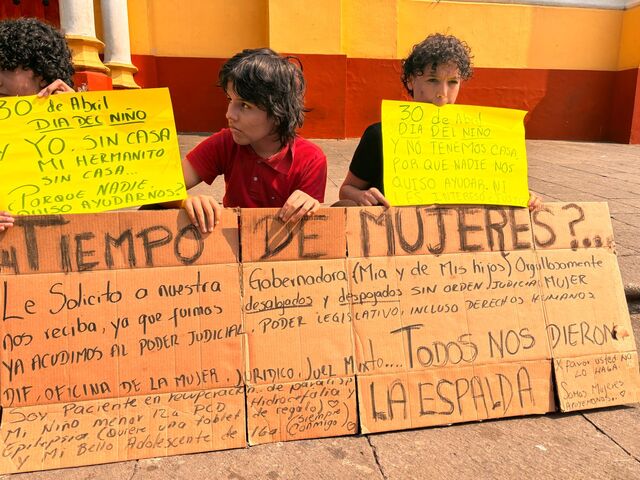 30 de Abril
DIA DEL NIÑO
Y YO. SIN CASA
MI HERMANITO
SIN CASA...
PORQUE NADIE
QUISO AYUDARNOS?
30 de Abril
DIA DEL NIÑO
Y NO TENEMOS CASA
PORQUE NADIE NOS
QUISO AYUDAR. NI
¿TIEMPO DE MUJERES?...
Le Solicito a nuestra Gobernadora (Mia y de Mis hijos) Orgullosamente MUJER
nos reciba, ya que fuimos desalojados y despojados SIN ORDEN JUDICIAL
YA ACUDIMOS AL PODER JUDICIAL, PODER LEGISLATIVO, INCLUSO DERECHOS HUMANOS
DIF, OFICINA DE LA MUJER, JURIDICO, JUEZ .... TODOS NOS DIERON
LA ESPALDA
Soy Paciente en recuperación de paralisis
Mi Niño menor 12a PCD Hidrocefalia y
Epilepsia (Quiere una tablet de regalo)
y Mi Bello Adolescente de 16a siempre Conmigo
X favor usted NO
LO HAGA.
Somos Mujeres
APOYEMONOS...